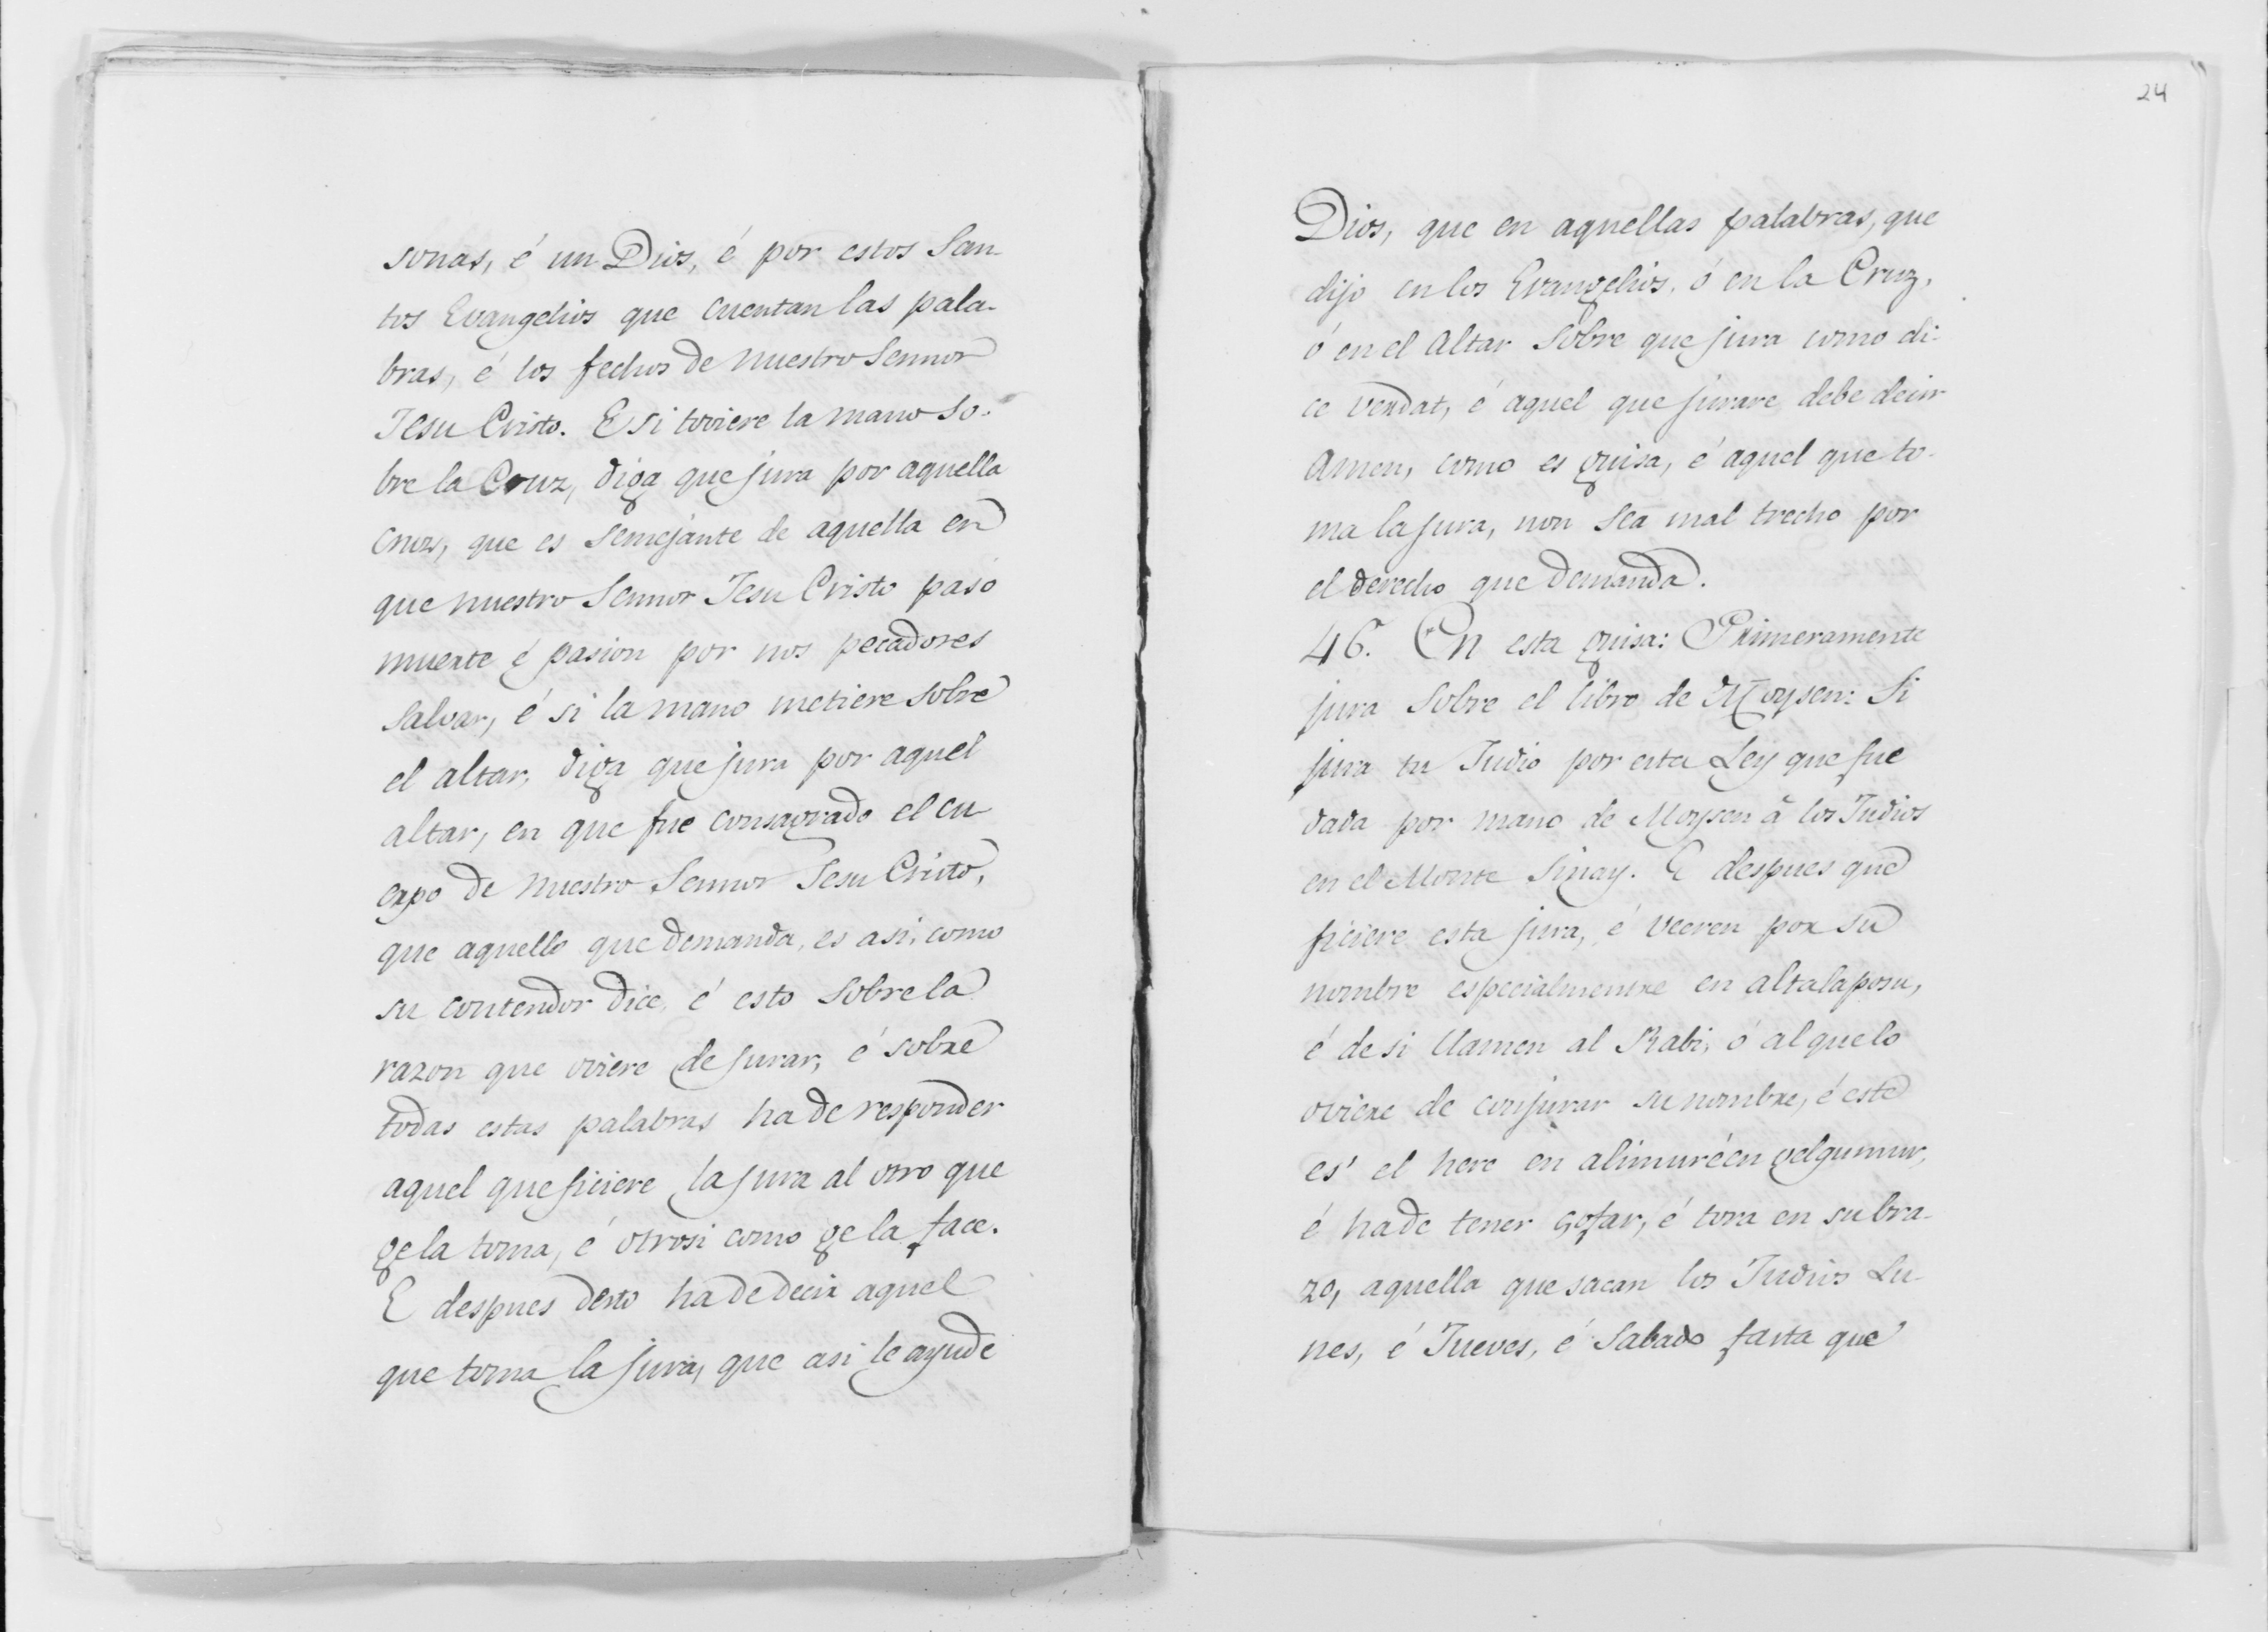 sonas, é un Dios, é por estos San-
tos Evangelios que cuentan las pala-
bras, é los fechos de nuestro Sennor
Jesu Cristo. E si toviere la mano so-
bre la Cruz, diga que jura por aquella
Cruz, que es semejante de aquella en
que nuestro Sennor Jesu Cristo pasó
muerte é pasion por nos pecadores
salvar, é si la mano metiere sobre
el altar, diga que jura por aquel
altar, en que fue consagrado el cu-
erpo de nuestro Sennor Jesu Cristo,
que aquello que demanda, es asi, como
su contendor dice, é esto sobre la
razon que oviere de jurar, é sobre
todas estas palabras ha de responder
aquel que ficiere la jura al otro que
ge la toma, é otrosi como ge la face.
E despues desto ha de decir aquel
que toma la jura, que asi le ayude
24
Dios, que en aquellas palabras, que
dijo en los Evangelios, ó en la Cruz,
ó en el Altar sobre que jura como di-
ce verdat, é aquel que jurare debe decir
Amen, como es guisa, é aquel que to-
ma la jura, non sea mal trecho por
el derecho que demanda.
46. En esta guisa: Primeramente
jura sobre el libro de Moysen: Si
jura tu Judio por esta Ley que fue
dada por mano de Moysen á los Judios
en el Monte Sinay. E despues que
ficiere esta jura, é veeren por su
nombre especialmentre en altalaposu,
é de si llamen al Rabi, ó al que lo
oviere de conjurar su nombre, é este
es el here en alimuréen gelgumur,
é ha de tener gofar, é tora en su bra-
zo, aquella que sacan los Judios Lu-
nes, é Jueves, é Sabado fasta que